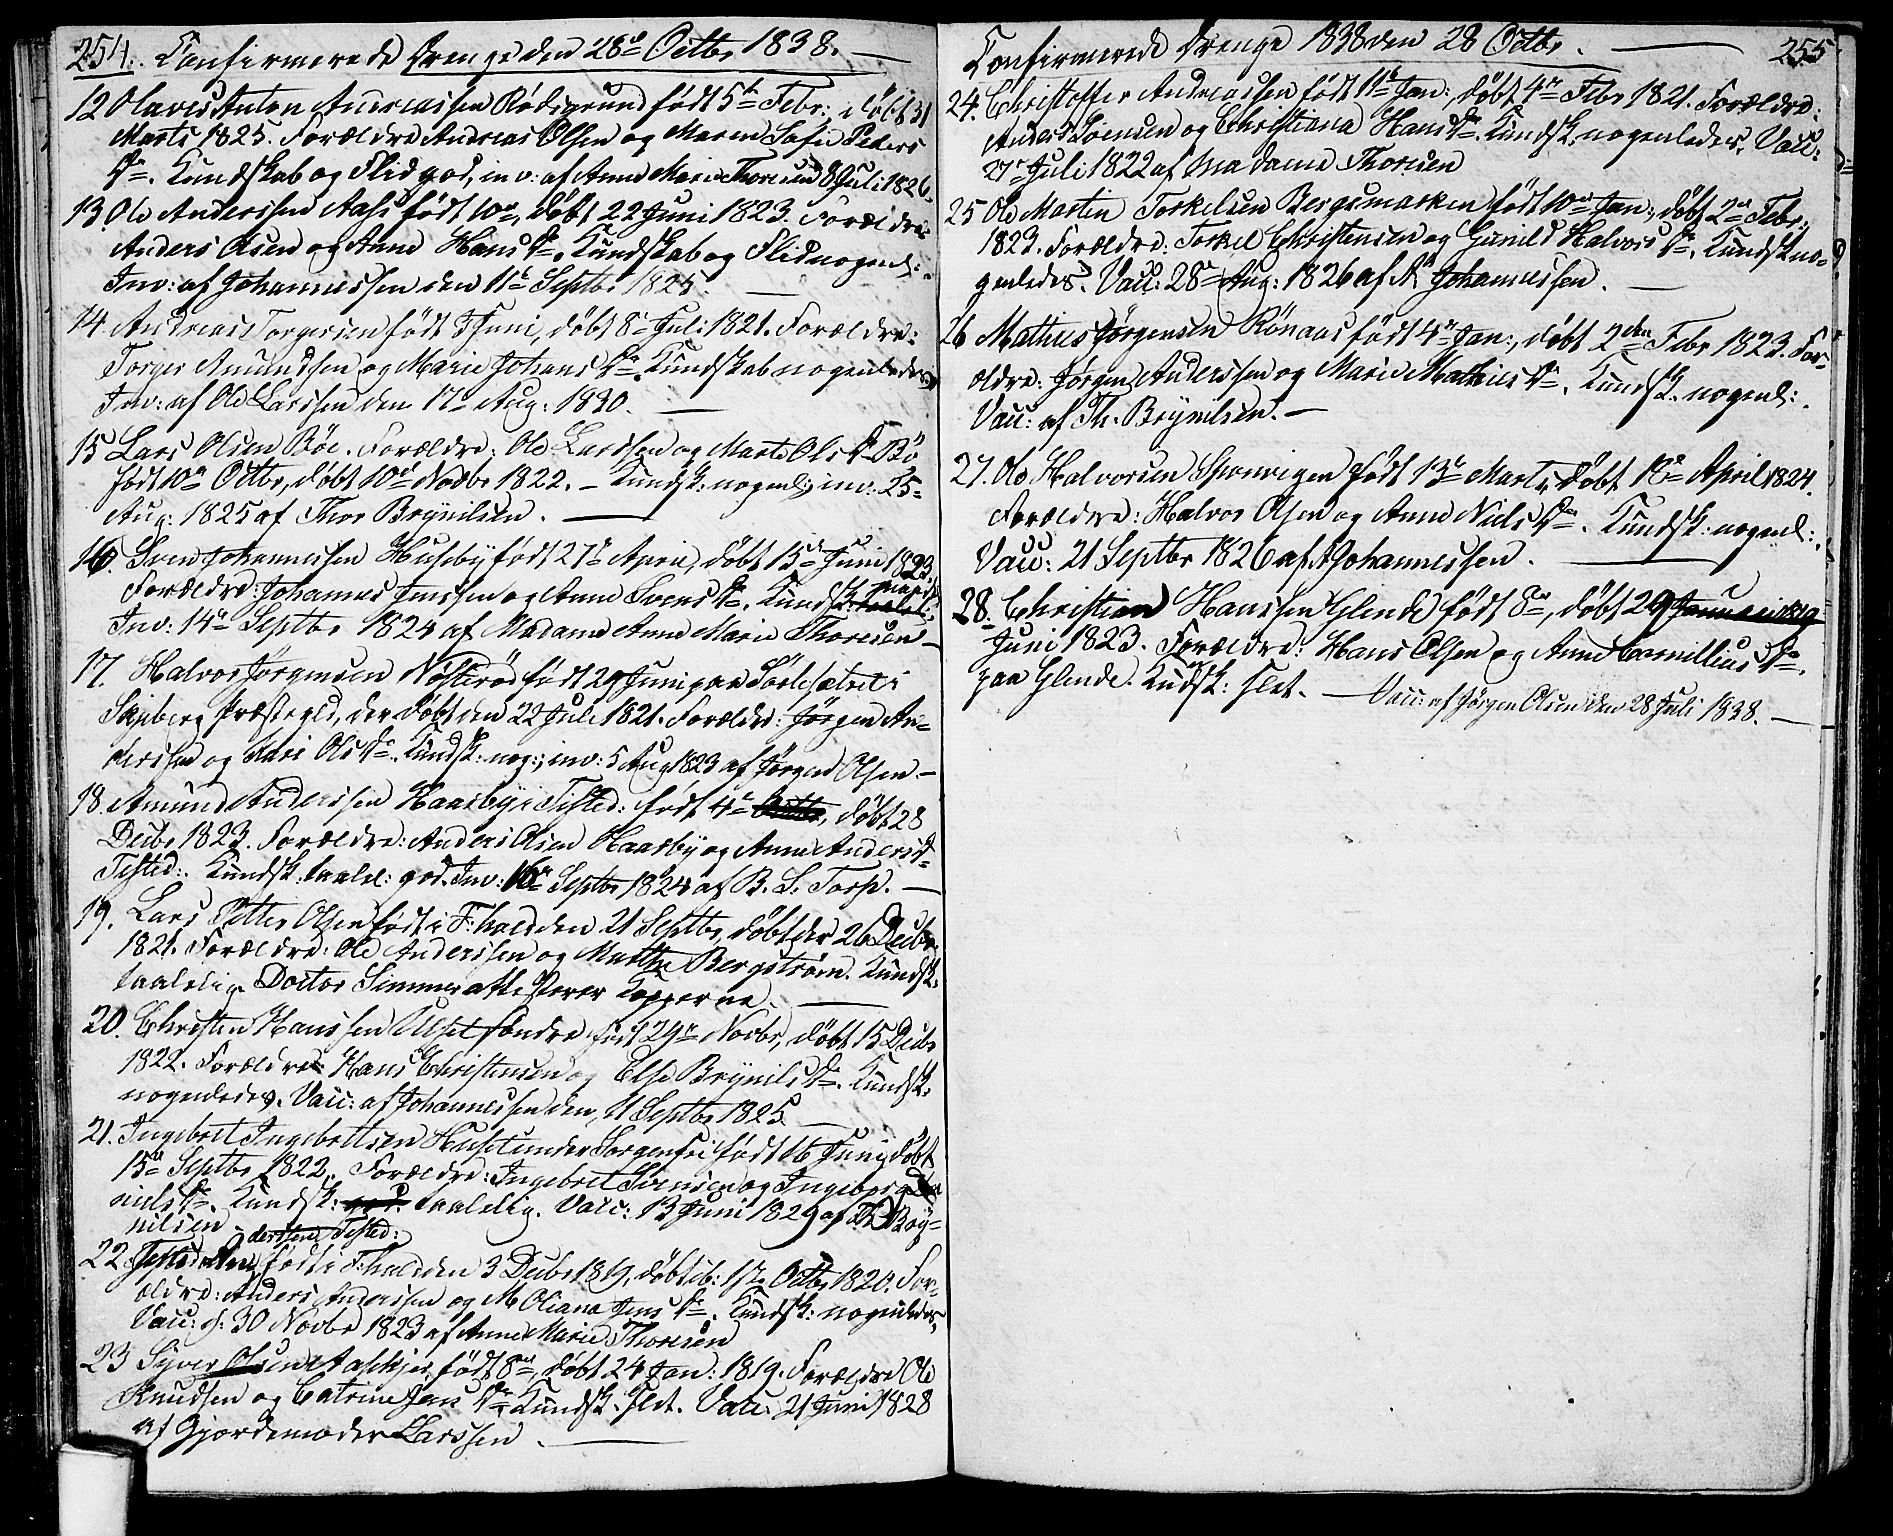 254. Confirmerede Drenge den 28de Octbr 1838. —
12 Olaves Anton Andreassen Rödsgrund födt 5te Febr:, döbt 31
Marts 1825. Forældre Andreas Olsen og Maren Sofie Peders
Dr. Kundskab og Flid god, inv: af Anne Marie Thoresen 8 Juli 1826
13. Ole Anderssen født 10de, døbt 22 Juni 1823. Forældre
Anders Olsen og Anne Hans Dr. Kundskab og Flid nogenl:.
Inv: af Johannessen den 11te Septbr 1825. —
14. Andreas Torgersen födt Juni, döbt 8de Juli 1821. Forældre:
Torger Amundsen og Marie Johans Dr. Kundskab nogenledes
Inv: af Ole Larssen den 17de Aug: 1830. —
15 Lars Olsen Böe. Forældre: Ole Larssen og Marte Ols Dr Bö
födt 10de Octbr, döbt 10de Novbr 1822. – Kundsk: nogenl:, inv: 25
Aug: 1825 af Thor Brynilsen. —
16. Sven Johannessen Huseby födt 27de April, döbt 15de Juni 1823.
Forældre: Johannes Jenssen og Anne Svens Dr. Kundsk:
Inv: 14de Septbr 1824 af Madame Anne Marie Thoresen —
17. Halvor Jörgensen Nösteröd födt 29 Juni paa
Skjeberg Præstegld, der döbt den 22 Juli 1821. Forældre: Jörgen An-
derssen og Kari Ols Dr. Kundsk: nog:, inv: 5 Aug 1823 af Jörgen Olsen —
18. Amund Anderssen Haasby Tisted: födt 4de Octbr, döbt 28
Decbr 1823. Forældre: Anders Olsen Haasby og Anne Anders Dr
Tisted:. Kundsk: taalel: god. Inv: 16de Septbr 1824 af B. S. Torp. —
19. Lars Petter Olsen födt i F:hald den 21 Septbr, döbt der 26 Decbr
1821. Forældre: Ole Anderssen og Marthe Bergström. Kundsk:
taalelig. Doctor Simmer attesterer Kopperne. —
20. Christen Hanssen Ulset söndre födt 29de Novbr, döbt 15 Decbr
1822. Forældre Hans Christensen og Else Brynils Dr. Kundsk:
nogenledes. Vacc: af Johannessen den 11 Septbr 1825. —
21. Ingebret Ingebretsen Huset under Sorgenfri födt 16 Juni, döbt
15de Septbr 1822. Forældre: Ingebret Svensen og Ingeborg Da
niels Dr. Kundsk: god taalelig. Vacc: 13 Juni 1829 af Th Bry-
nilsen
derssen Tisted:
22 An födt i F:hald den 3 Decbr 1819, döbt ib: 17de Octbr 1820. For-
ældre: Anders Anderssen og M Oliana Jens Dr. Kundsk: nogenledes,
Vacc: d: 30 Novbr 1823 af Anne Marie Thoresen
23 Syver Olsen Aaskjer, födt 8de, döbt 24 Jan: 1819. Forældre Ole
Knudsen og Catrine Jens Dr Kundsk: slet. Vacc: 21 Juni 1828
af Gjordemoder Larssen. —
Confirmerede Drenge 1838 den 28 Octbr. — 255
24. Christoffer Andreassen födt 11te Jan:, döbt 4de Febr 1821. Forældre:
Anders Sörensen og Christiana Hans Dr. Kundsk: nogenledes. Vacc:
27de Juli 1822 af Madame Thoresen
25 Ole Martin Torkelsen Bergsmarken födt 10de Jan:, döbt 2den Febr:
1823. Forældre: Torkel Christensen og Gunild Halvors Dr. Kundsk no-
genledes. Vacc: 28de Aug: 1826 af A: Johannessen. —
26 Mathies Jörgensen Rönaas födt 4de Jan:, döbt 2den Febr 1823. For-
ældre: Jörgen Anderssen og Marie Mathies Dr. Kundsk: nogenl:.
Vacc: af Th. Brynilsen. —
27. Ole Halvorsen Sponvigen födt 13de Marts, döbt 18de April 1824.
Forældre: Halvor Olsen og Anne Niels Dr. Kundsk: nogenl:.
Vacc: 21 Septbr 1826 af A Johannessen. —
28. Christian Hanssen Glende födt 8de, döbt 29 Januari 1819
Juni 1823. Forældre: Hans Olsen og Anne Cornillius Dr.
paa Glende. Kundsk: slet. — Vacc: af Jörgen Olsen den 28 Juli 1838. —